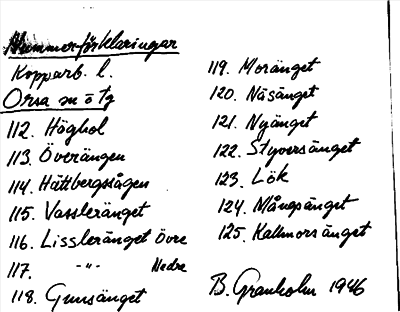 Nummerförklaringar
Kopparb. l.
Orsa sn o tg
112. Höghol
113. Överängen
114. Hättbergssågen
115. Vassleränget
116. Lissleränget Övre
117. -"- Nedre
118. Gunsänget
119. Moränget
120. Näsänget
121. Nyänget
122. Styversänget
123. Lök
124. Mångsänget
125. Kallmorsänget
B. Granholm 1946